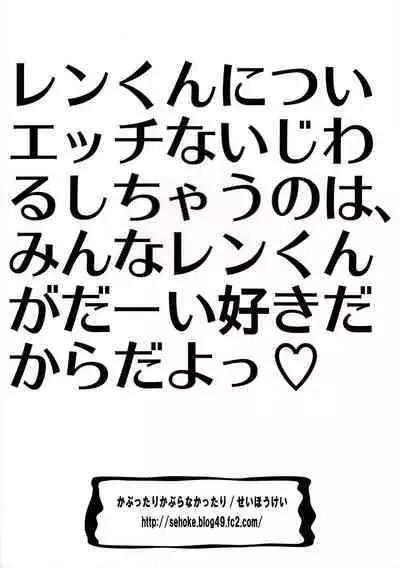 レンくんについ
エッチないじわ
るしちゃうのは、
みんなレンくん
がだーい好きだ
からだよっ♡
かぶったりかぶらなかったり / せいほうけい
http://sehoke.blog49.fc2.com/